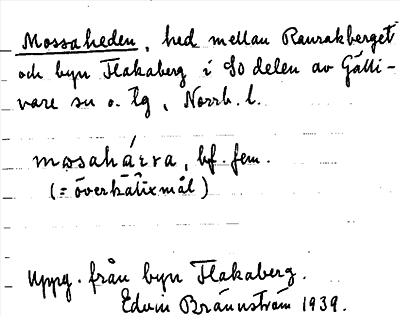 Mossaheden, hed mellan Ranrakberget
och byn Flakaberg i SO delen av Gälli-
vare sn o. tg, Norrb. l.
mosahárra, bf. fem.
(= överkalixmål)
Uppg. från byn Flakaberg.
Edvin Brännström 1939.